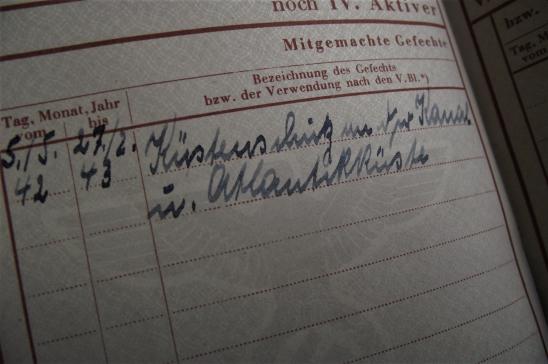 noch IV. Aktiver
Mitgemachte Gefechte
Tag, Monat, Jahr
vom
bis
Bezeichnung des Gefechts
bzw. der Verwendung nach den V.Bl.*)
5./5.
42
27./2.
43
Küstenschutz an der Kanal
u. Atlantikküste
V.
bzw.
Tag, M
vom